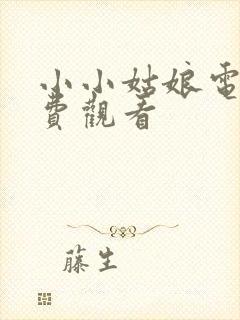 小小姑娘電
費觀看
藤生